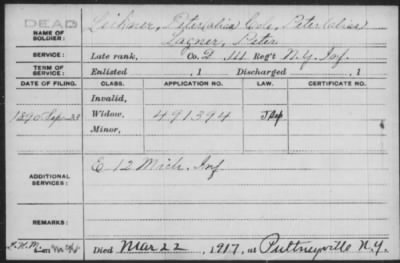 DEAD
NAME OF SOLDIER: Lichner, Peter alias Cole, Peter alias
Lagner, Peter
SERVICE: Late rank, Co. D, 111 Reg't N.Y. Inf.
TERM OF SERVICE: Enlisted , 1 Discharged , 1
DATE OF FILING. CLASS. APPLICATION NO. LAW. CERTIFICATE NO.
Invalid,
1890 Sep. 23 Widow, 491394
Minor,
ADDITIONAL SERVICES: E 12 Mich. Inf
REMARKS:
Died Mar 22, 1917, at Pultneyville N.Y.